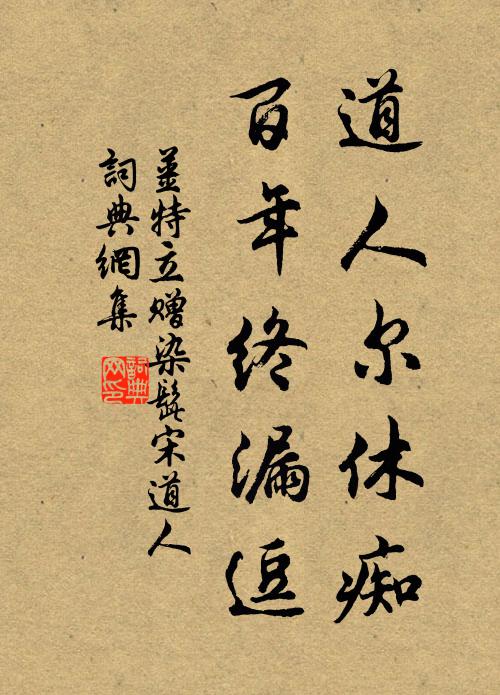 道人尔休痴
百年终漏逗
姜特立赠染髭宋道人
詞典網集
詞典網印